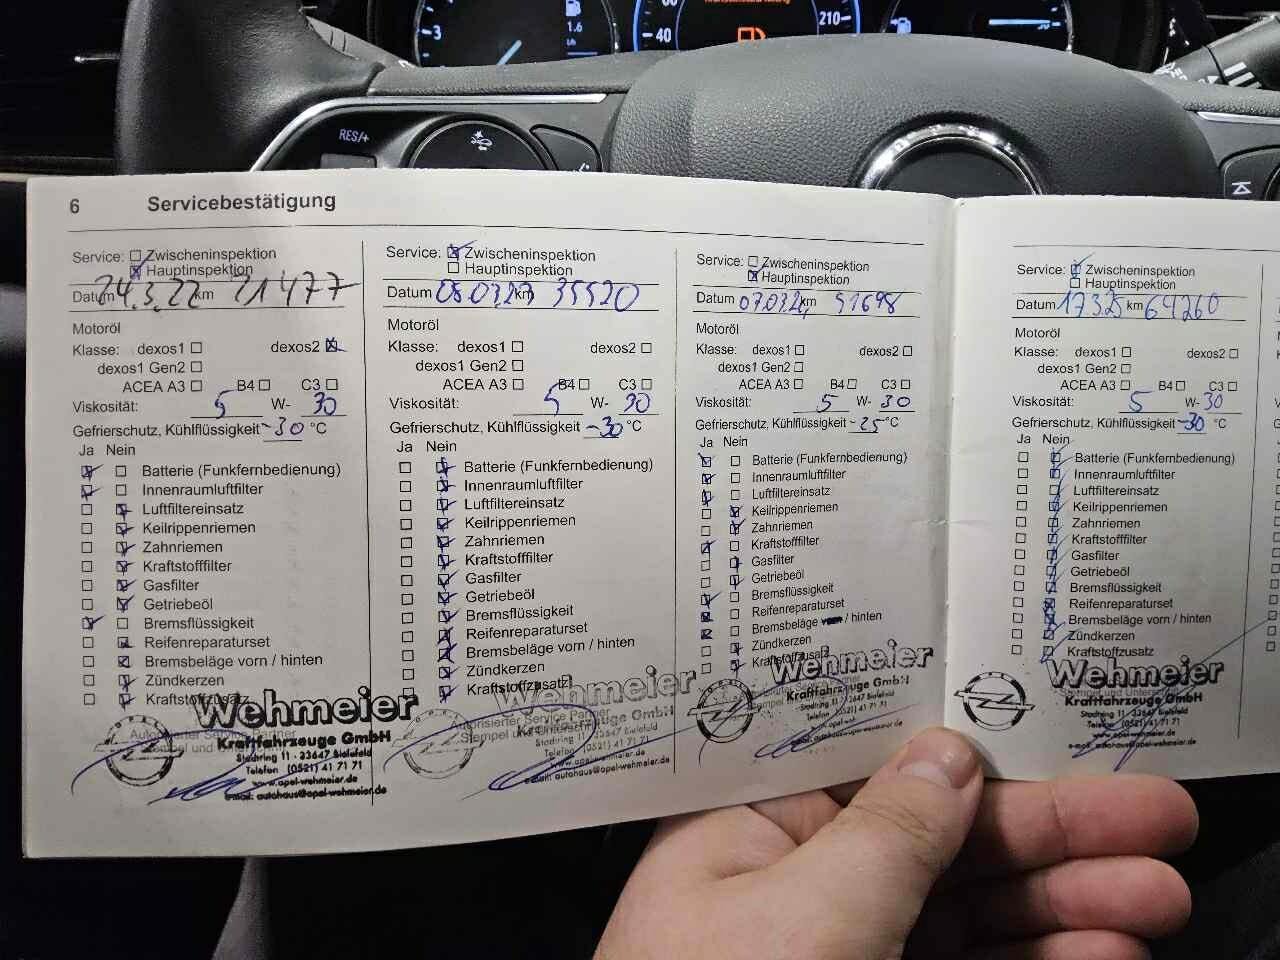 3
1.6
60
40
210
RES/+
6 Servicebestätigung
Service: Zwischeninspektion
Hauptinspektion
Datum 24.3.22 km 21477
Motoröl
Klasse: dexos1 dexos2
dexos1 Gen2
ACEA A3 B4 C3
Viskosität: 5 W- 30
Gefrierschutz, Kühlflüssigkeit -30 °C
Ja Nein
Batterie (Funkfernbedienung)
Innenraumluftfilter
Luftfiltereinsatz
Keilrippenriemen
Zahnriemen
Kraftstofffilter
Gasfilter
Getriebeöl
Bremsflüssigkeit
Reifenreparaturset
Bremsbeläge vorn / hinten
Zündkerzen
Kraftstoffzusatz
Autorisierter Service Partner
Stempel und
Wehmeier
Kraftfahrzeuge GmbH
Stadring 11 - 33647 Bielefeld
Telefon (0521) 41 71 71
www.opel-wehmeier.de
e-mail: autohaus@opel-wehmeier.de
Service: Zwischeninspektion
Hauptinspektion
Datum 08.03.23 km 35520
Motoröl
Klasse: dexos1 dexos2
dexos1 Gen2
ACEA A3 B4 C3
Viskosität: 5 W- 30
Gefrierschutz, Kühlflüssigkeit -30 °C
Ja Nein
Batterie (Funkfernbedienung)
Innenraumluftfilter
Luftfiltereinsatz
Keilrippenriemen
Zahnriemen
Kraftstofffilter
Gasfilter
Getriebeöl
Bremsflüssigkeit
Reifenreparaturset
Bremsbeläge vorn / hinten
Zündkerzen
Kraftstoffzusatz
Autorisierter Service Partner
Stempel und Unterschrift
Wehmeier
Kraftfahrzeuge GmbH
Stadring 11 - 33647 Bielefeld
Telefon (0521) 41 71 71
e-mail: autohaus@opel-wehmeier.de
Service: Zwischeninspektion
Hauptinspektion
Datum 07.03.24 km 51698
Motoröl
Klasse: dexos1 dexos2
dexos1 Gen2
ACEA A3 B4 C3
Viskosität: 5 W- 30
Gefrierschutz, Kühlflüssigkeit -25 °C
Ja Nein
Batterie (Funkfernbedienung)
Innenraumluftfilter
Luftfiltereinsatz
Keilrippenriemen
Zahnriemen
Kraftstofffilter
Gasfilter
Getriebeöl
Bremsflüssigkeit
Reifenreparaturset
Bremsbeläge / hinten
Zündkerzen
Kraftstoffzusatz
Wehmeier
Kraftfahrzeuge GmbH
Stadring 11 - 33647 Bielefeld
Telefon (0521) 41 71 71
Service: Zwischeninspektion
Hauptinspektion
Datum 17.3.25 km 64260
Motoröl
Klasse: dexos1 dexos2
dexos1 Gen2
ACEA A3 B4 C3
Viskosität: 5 W- 30
Gefrierschutz, Kühlflüssigkeit -30 °C
Ja Nein
Batterie (Funkfernbedienung)
Innenraumluftfilter
Luftfiltereinsatz
Keilrippenriemen
Zahnriemen
Kraftstofffilter
Gasfilter
Getriebeöl
Bremsflüssigkeit
Reifenreparaturset
Bremsbeläge vorn / hinten
Zündkerzen
Kraftstoffzusatz
Wehmeier
Kraftfahrzeuge GmbH
Stadring 11 - 33647 Bielefeld
Telefon (0521) 41 71 71
e-mail: autohaus@opel-wehmeier.de